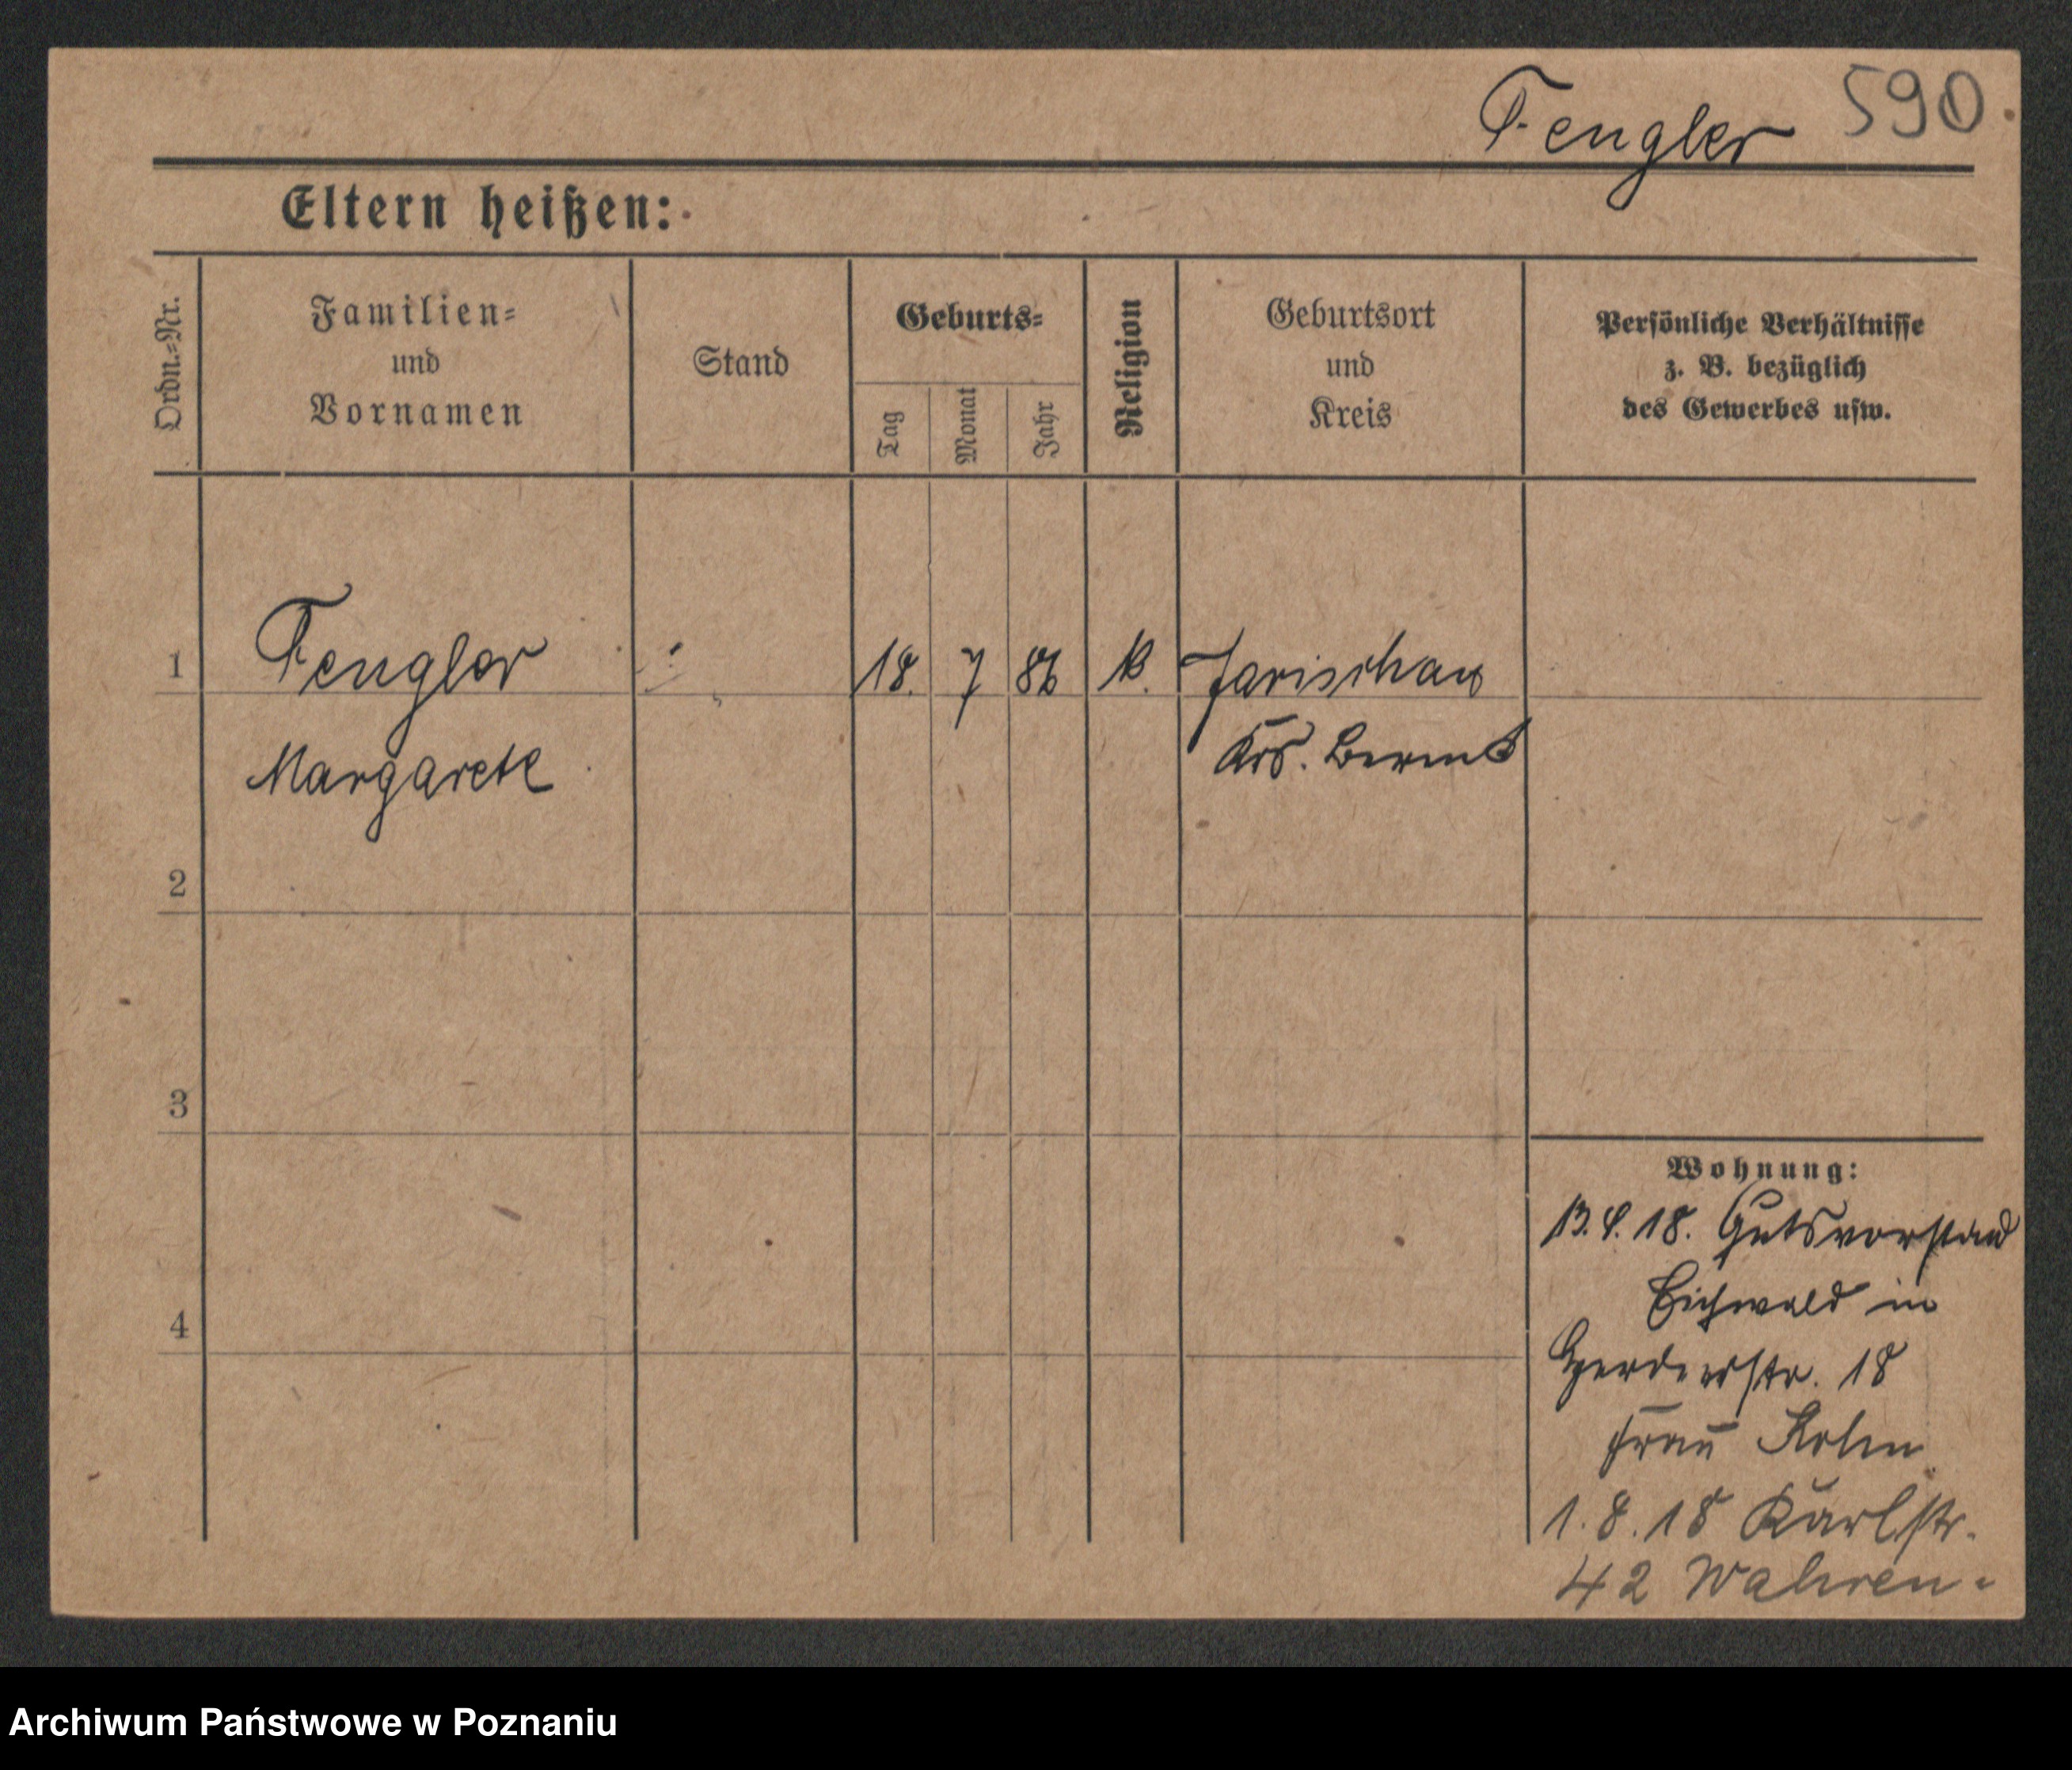 Fengler 590
Eltern heißen:
Ordn.-Nr.
Familien-
und
Vornamen
Stand
Geburts-
Tag
Monat
Jahr
Religion
Geburtsort
und
Kreis
Persönliche Verhältnisse
z. B. bezüglich
des Gewerbes usw.
1
Fengler
18. 7 86 k. Jarischau
Margarete
Krs. Berent
2
3
4
Wohnung:
13.4.18. Gutsvorstand
Eichwald in
18
Frau
1.8.18 Karlstr.
42 Wahren-
Archiwum Państwowe w Poznaniu